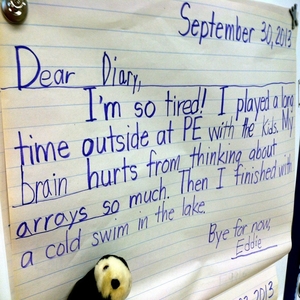 September 30, 2013
Dear Diary,
I'm so tired! I played a long
time outside at PE with the kids. My
brain hurts from thinking about
arrays so much. Then I finished with
a cold swim in the lake.
Bye for now,
Eddie
2013